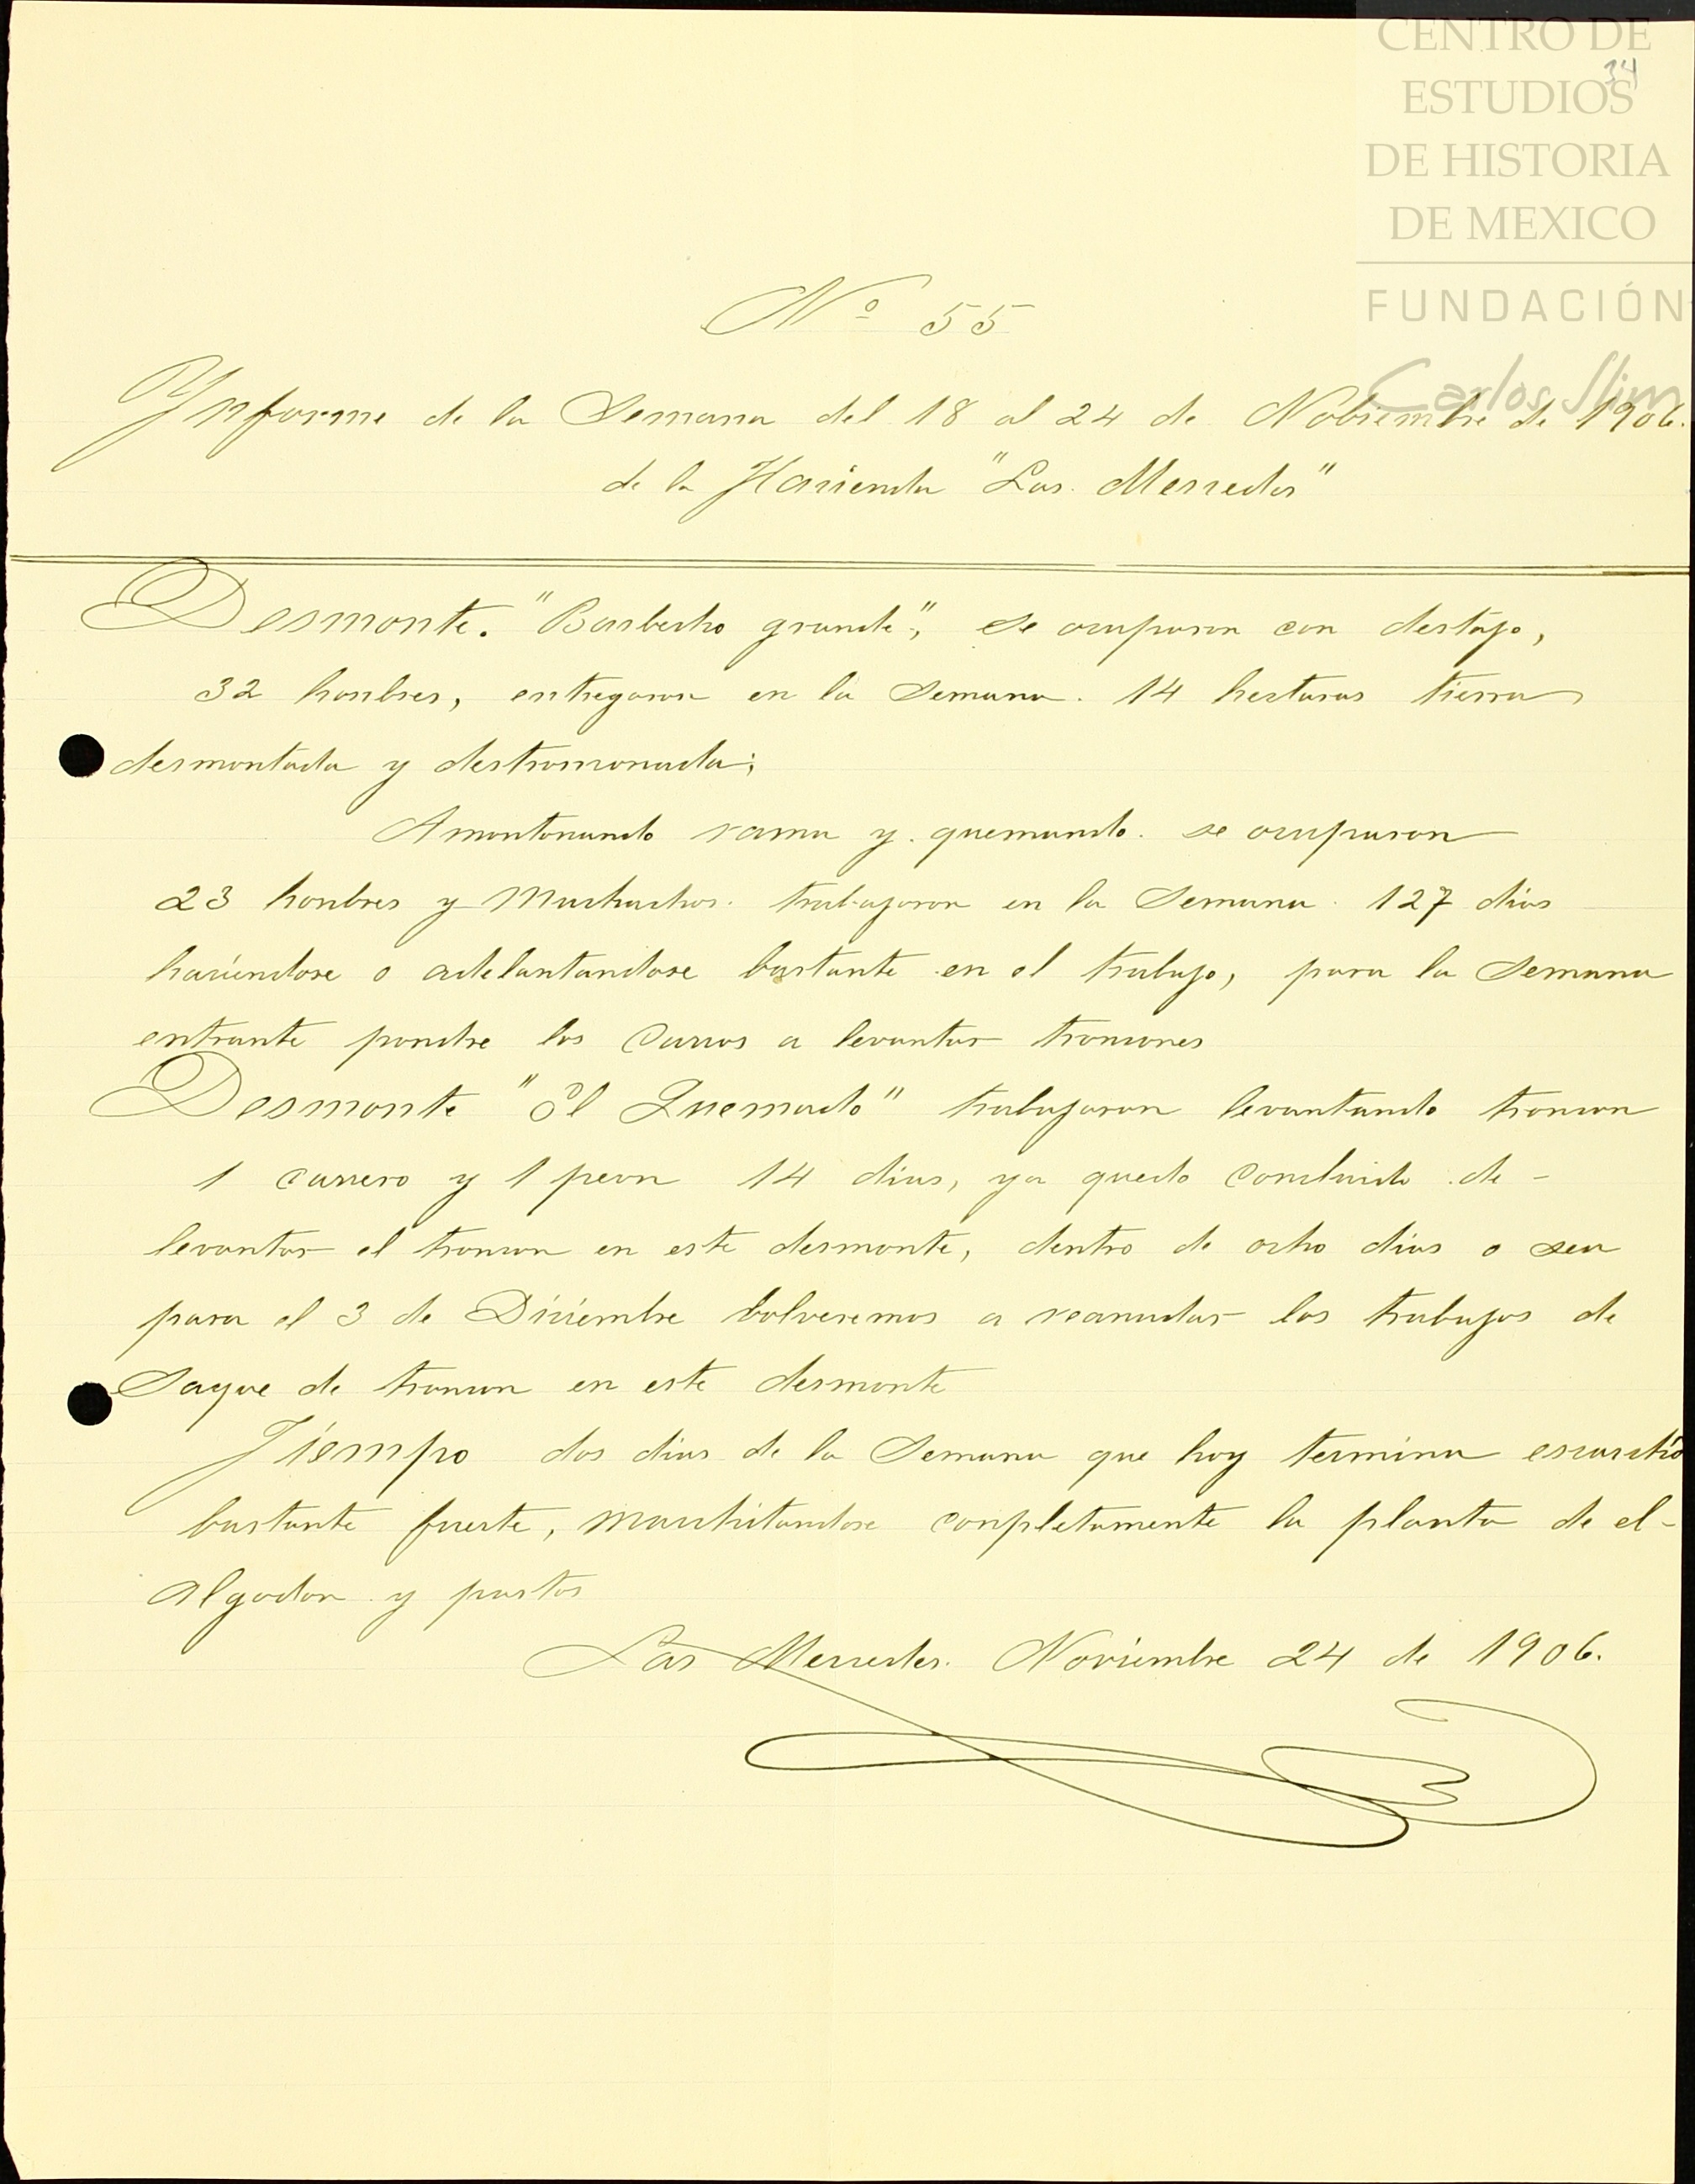 CENTRO DE
34
ESTUDIOS
DE HISTORIA
DE MEXICO
FUNDACIÓN
Carlos Slim
Nº 55
Ynforme de la Semana del 18 al 24 de Nobiembre de 1906.
de la Hacienda "Las Mercedes"
Desmonte. "Barbecho grande", se ocuparon con destajo,
32 honbres, entregaron en la Semana. 14 hectaras tierra
desmontada y destronconada;
Amontonando rama y quemando. se ocuparon
23 honbres y Muchachos. trabajaron en la Semana. 127 dias
haciendose o adelantandose bastante en el trabajo, para la Semana
entrante pondre los Carros a levantar troncones
Desmonte "El Quemado" trabajaron levantando troncon
1 carrero y 1 peon 14 dias, ya quedo concluido de -
levantar el troncon en este desmonte, dentro de ocho dias o sea
para el 3 de Diciembre bolveremos a reanudar los trabajos de
Saque de troncon en este desmonte
Tiempo dos dias de la Semana que hoy termina escarchó
bastante fuerte, marchitandose conpletamente la planta de el-
algodon y pastos
Las Mercedes. Noviembre 24 de 1906.